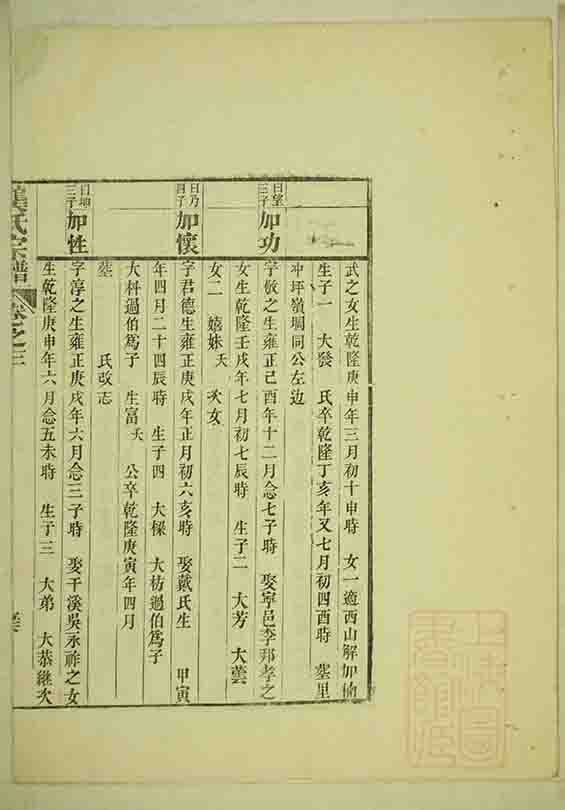 武之女生乾隆庚申年三月初十申時 女一適西山解加楠
生子一 大發 氏卒乾隆丁亥年又七月初四酉時 墓里
冲坪嶺堈同公左边
曰望三子 加功 字敬之生雍正己酉年十二月念七子時 娶寧邑李邦孝之
女生乾隆壬戌年七月初七辰時 生子二 大芳 大蕓
女二 嬉姝夭 次女
曰乃四子 加懷 字君德生雍正庚戌年正月初六亥時 娶戴氏生 甲寅
年四月二十四辰時 生子四 大樑 大枋過伯爲子
大枓過伯爲子 生富夭 公卒乾隆庚寅年四月
墓 氏改志
曰坤三子 加性 字淳之生雍正庚戌年六月念三子時 娶干溪吳永祚之女
生乾隆庚申年六月念五未時 生子三 大弟 大恭継次
氏宗譜 卷之三
上海圖書館藏